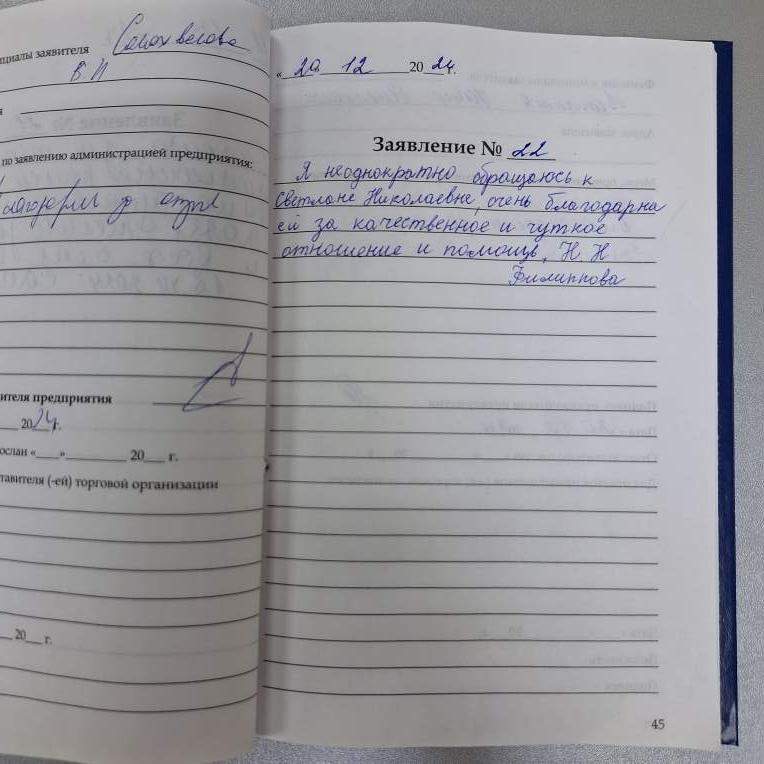 циалы заявителя
В. П
по заявлению администрацией предприятия:
ителя предприятия
2024г.
ослан «___»________ 20___ г.
тавителя (-ей) торговой организации
20___ г.
« 20 12 2024г.
Заявление № 22
Я неоднократно обращаюсь к
Светлане Николаевне, очень благодарна
ей за качественное и чуткое
отношение и помощь. Н. Н
Филиппова
45